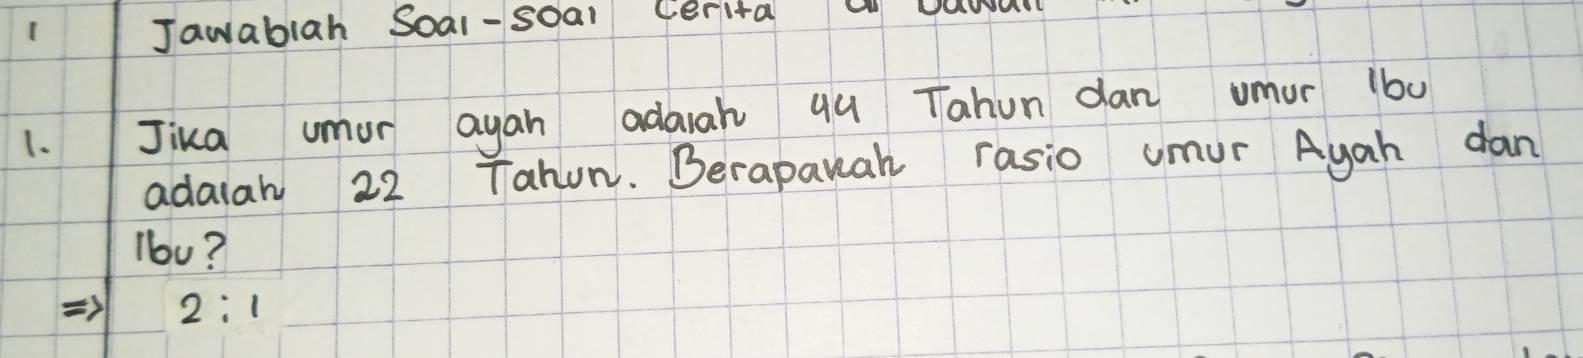 1 Jawablah Soal-soal Cerita di bawah
1. Jika umur ayah adalah 44 Tahun dan umur Ibu
adalah 22 Tahun. Berapakah rasio umur Ayah dan
Ibu?
=> 2:1